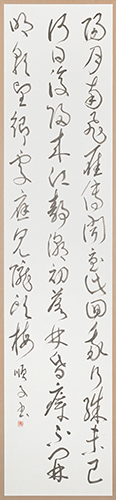 陽月南飛雁傳聞至此回我行殊未已
何日復歸來江靜潮初落林昏瘴不開
明朝望鄉處應見隴頭梅 順書